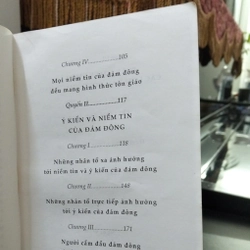 Chương IV.................105
Mọi niềm tin của đám đông
đều mang hình thức tôn giáo
Quyển II.................117
Ý KIẾN VÀ NIỀM TIN
CỦA ĐÁM ĐÔNG
Chương I.................118
Những nhân tố xa ảnh hưởng
tới niềm tin và ý kiến của đám đông
Chương II.................148
Những nhân tố trực tiếp ảnh hưởng
tới ý kiến của đám đông
Chương III.................171
Người cầm đầu đám đông